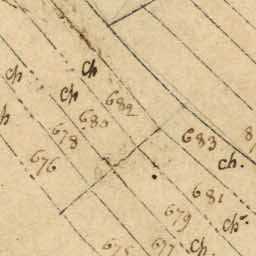 ch
ch
ch
682
680
678
676
683
ch.
681
ch.
679
677
ch.